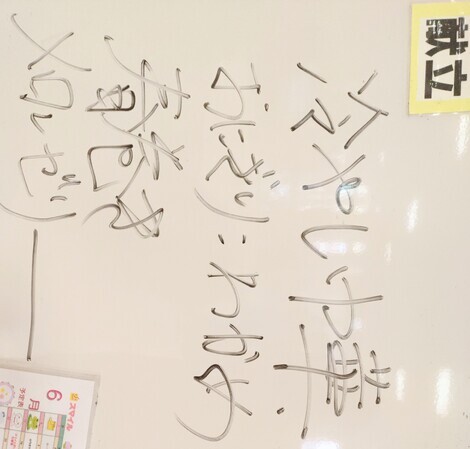 献立
冷やし中華
おにぎり:わかめ
春巻き
メロンゼリー
スマイル
6月